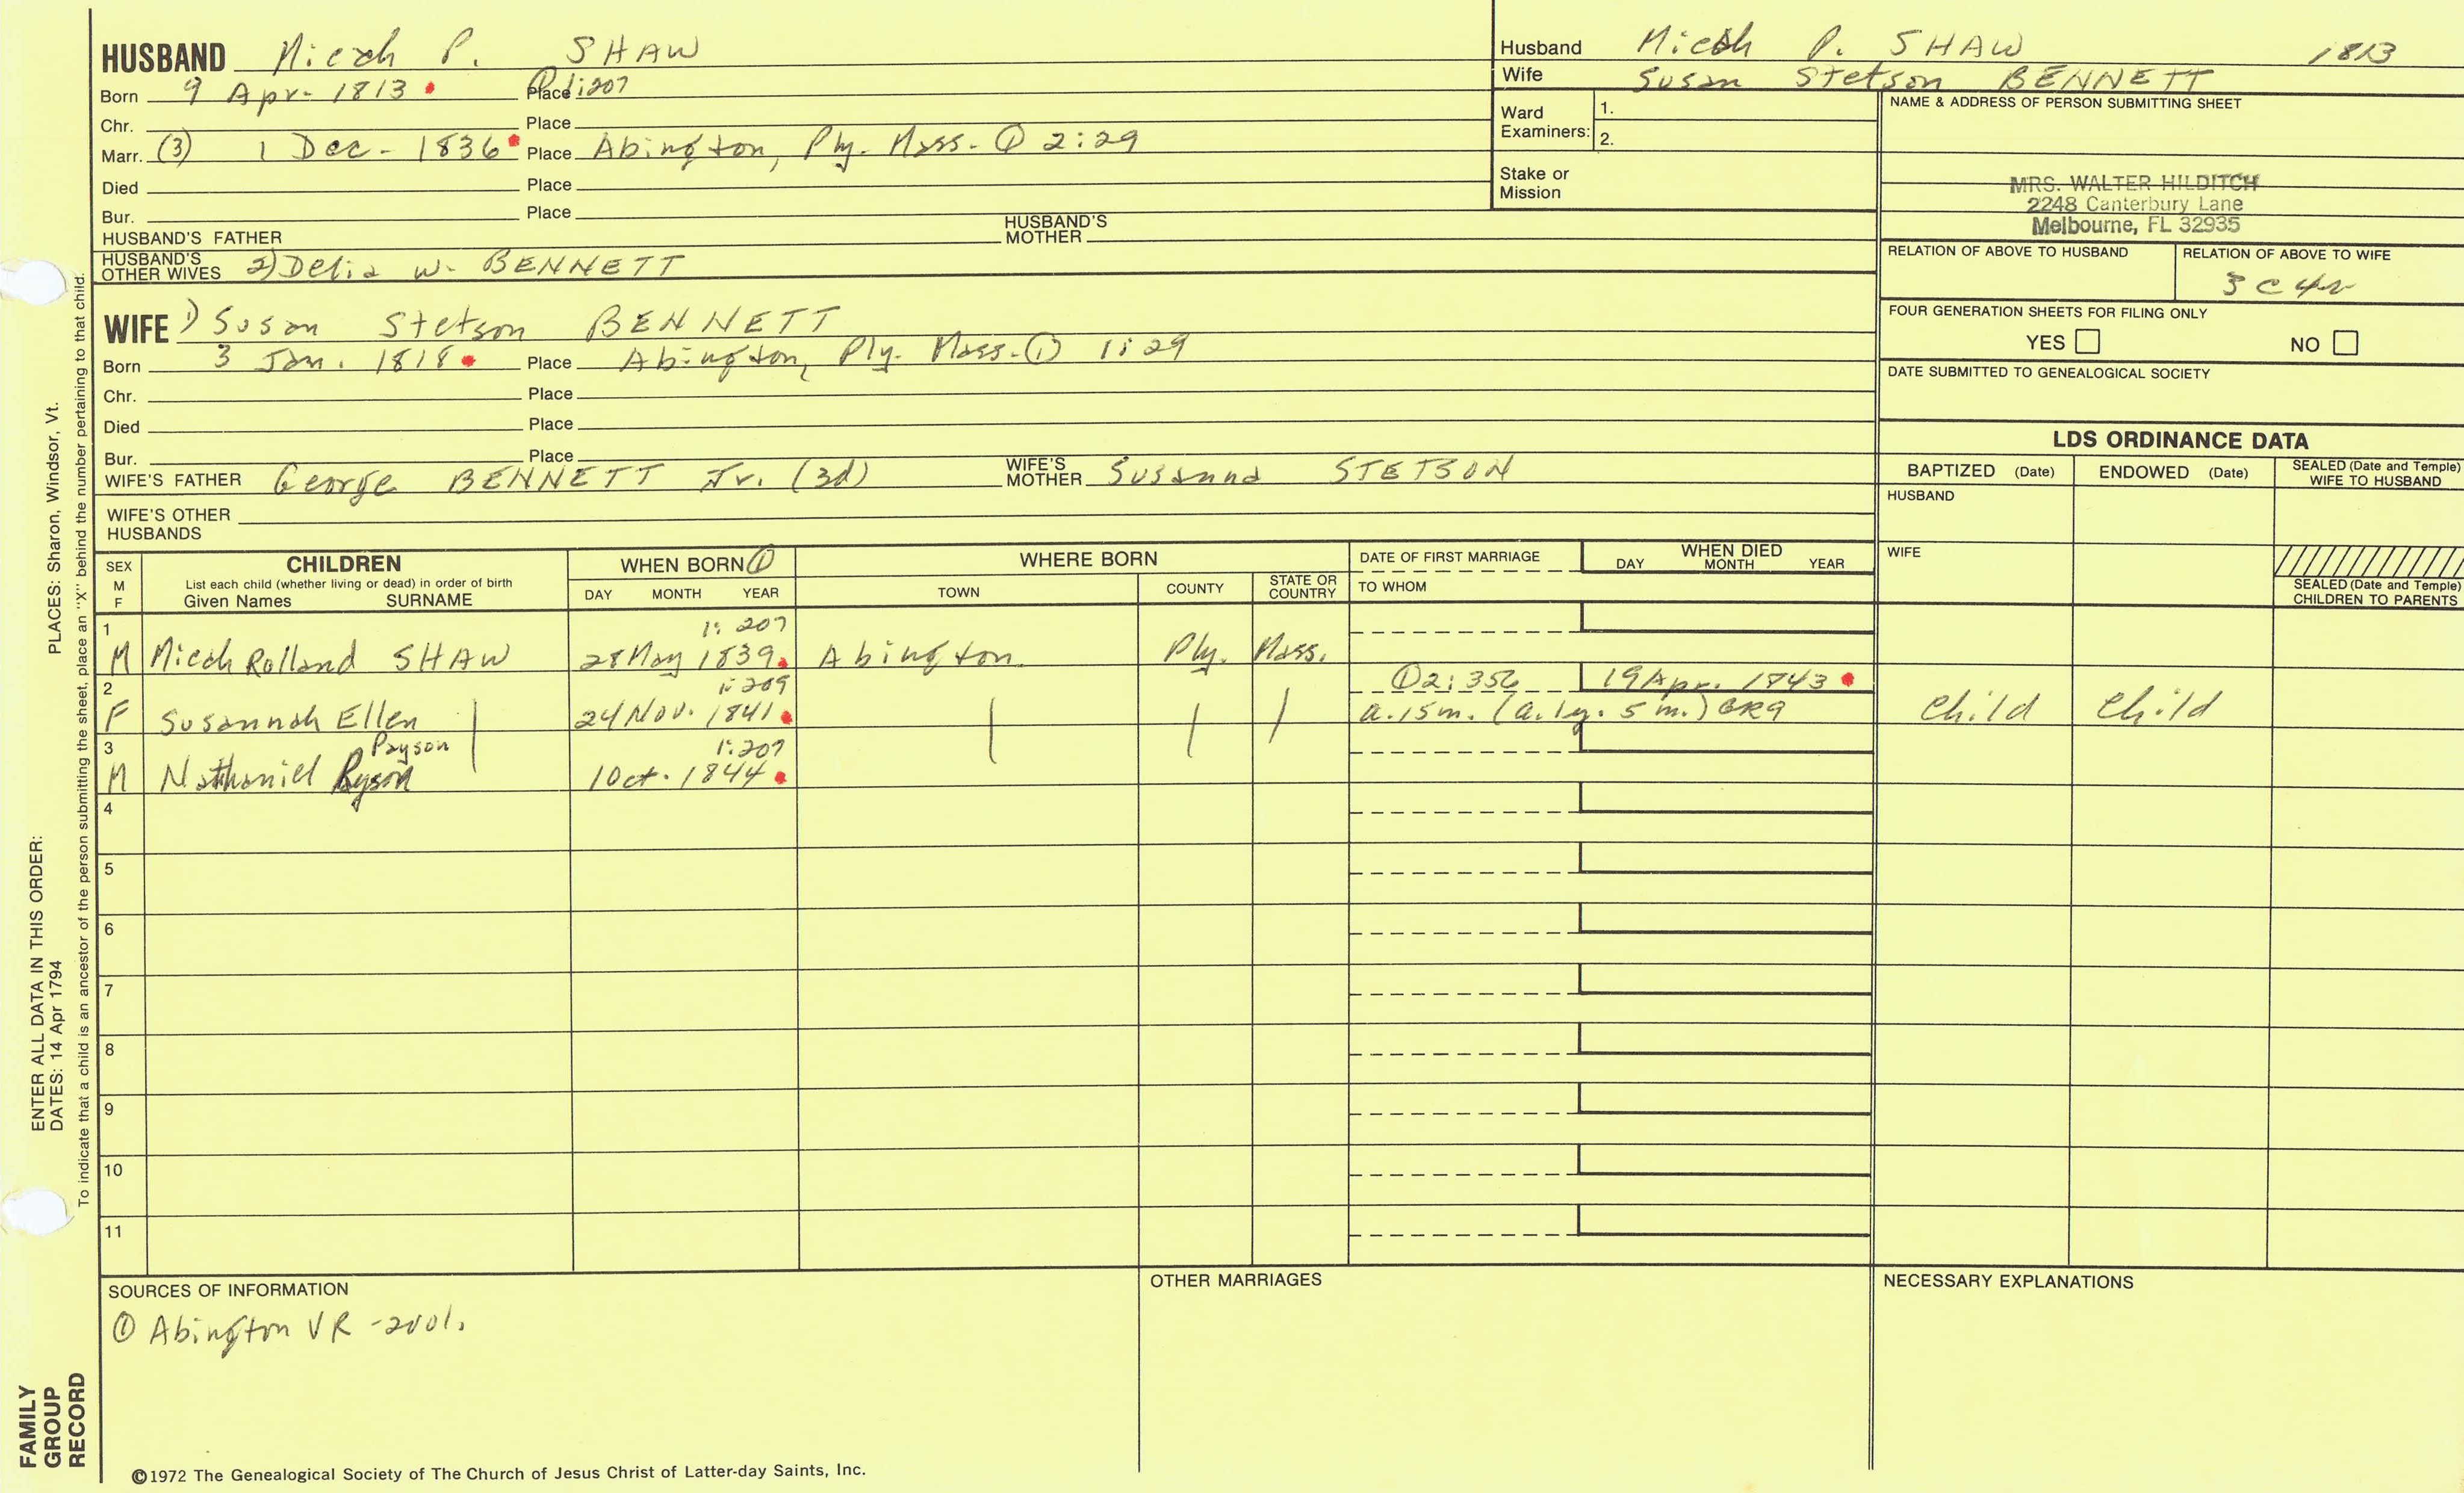 HUSBAND Micah P. SHAW
Born 9 Apr. 1813 Place ① 1:207
Chr. Place
Marr. (3) 1 Dec. 1836 Place Abington, Ply. Mass. ① 2:29
Died Place
Bur. Place
HUSBAND'S FATHER HUSBAND'S MOTHER
HUSBAND'S OTHER WIVES 2) Delia W. BENNETT
WIFE 1) Susan Stetson BENNETT
Born 3 Jan. 1818 Place Abington, Ply. Mass. ① 1:29
Chr. Place
Died Place
Bur. Place
WIFE'S FATHER George BENNETT Jr. (3d) WIFE'S MOTHER Susanna STETSON
WIFE'S OTHER HUSBANDS
Husband Micah P. SHAW 1813
Wife Susan Stetson BENNETT
Ward Examiners: 1.
2.
Stake or Mission
NAME & ADDRESS OF PERSON SUBMITTING SHEET
MRS. WALTER HILDITCH
2248 Canterbury Lane
Melbourne, FL 32935
RELATION OF ABOVE TO HUSBAND RELATION OF ABOVE TO WIFE
3 C 4r
FOUR GENERATION SHEETS FOR FILING ONLY
YES NO
DATE SUBMITTED TO GENEALOGICAL SOCIETY
LDS ORDINANCE DATA
BAPTIZED (Date) ENDOWED (Date) SEALED (Date and Temple) WIFE TO HUSBAND
HUSBAND
WIFE
SEALED (Date and Temple) CHILDREN TO PARENTS
SEX M F CHILDREN WHEN BORN ① WHERE BORN DATE OF FIRST MARRIAGE WHEN DIED
List each child (whether living or dead) in order of birth
Given Names SURNAME DAY MONTH YEAR TOWN COUNTY STATE OR COUNTRY TO WHOM DAY MONTH YEAR
1 1:207
M Micah Rolland SHAW 28 May 1839 Abington Ply. Mass.
2 1:209 ① 2:356 19 Apr. 1843
F Susannah Ellen 24 Nov. 1841 a. 15 m. (a. 1 y. 5 m.) GR9 Child Child
3 Payson 1:207
M Nathaniel 1 Oct. 1844
4
5
6
7
8
9
10
11
SOURCES OF INFORMATION OTHER MARRIAGES NECESSARY EXPLANATIONS
① Abington VR - 2 vol.
©1972 The Genealogical Society of The Church of Jesus Christ of Latter-day Saints, Inc.
FAMILY
GROUP
RECORD
ENTER ALL DATA IN THIS ORDER:
DATES: 14 Apr 1794 PLACES: Sharon, Windsor, Vt.
To indicate that a child is an ancestor of the person submitting the sheet, place an "X" behind the number pertaining to that child.